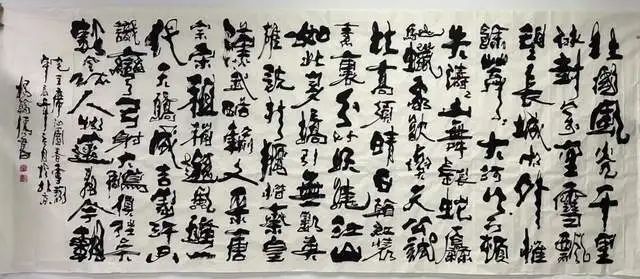 北國風光千里
冰封萬里雪飄
望長城內外惟
餘莽莽大河上下頓
失滔滔山舞銀蛇原
馳蠟象欲與天公試
比高須晴日看紅裝
素裹分外妖嬈江山
如此多嬌引無數英
雄競折腰惜秦皇
漢武略輸文采唐
宗宋祖稍遜風騷一
代天驕成吉思汗只
識彎弓射大雕俱往矣
數風流人物還看今朝
毛主席沁園春雪詞
年月於北京